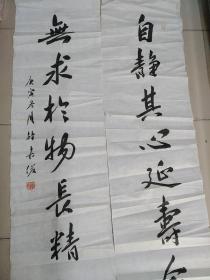 自静其心延壽
無求於物長精
庚寅冬月